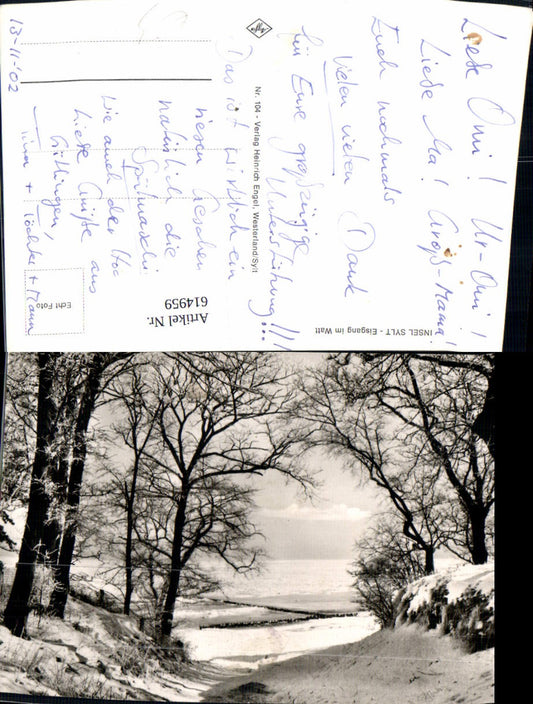 13-11-'02
Liebe Omi! Ur-Omi!
Liebe Ma! Groß-Mama!
Euch nochmals
vielen vielen Dank
für Eure großzügige
Unterstützung!!!
Das ist wirklich ein
riesen
natürlich die
Spülmaschine
wie auch der
Liebe Grüße aus
Göttingen,
+ Tochter + Mann
Nr. 104 - Verlag Heinrich Engel, Westerland/Sylt
INSEL SYLT - Eisgang im Watt
Echt Foto
Artikel Nr.
614959